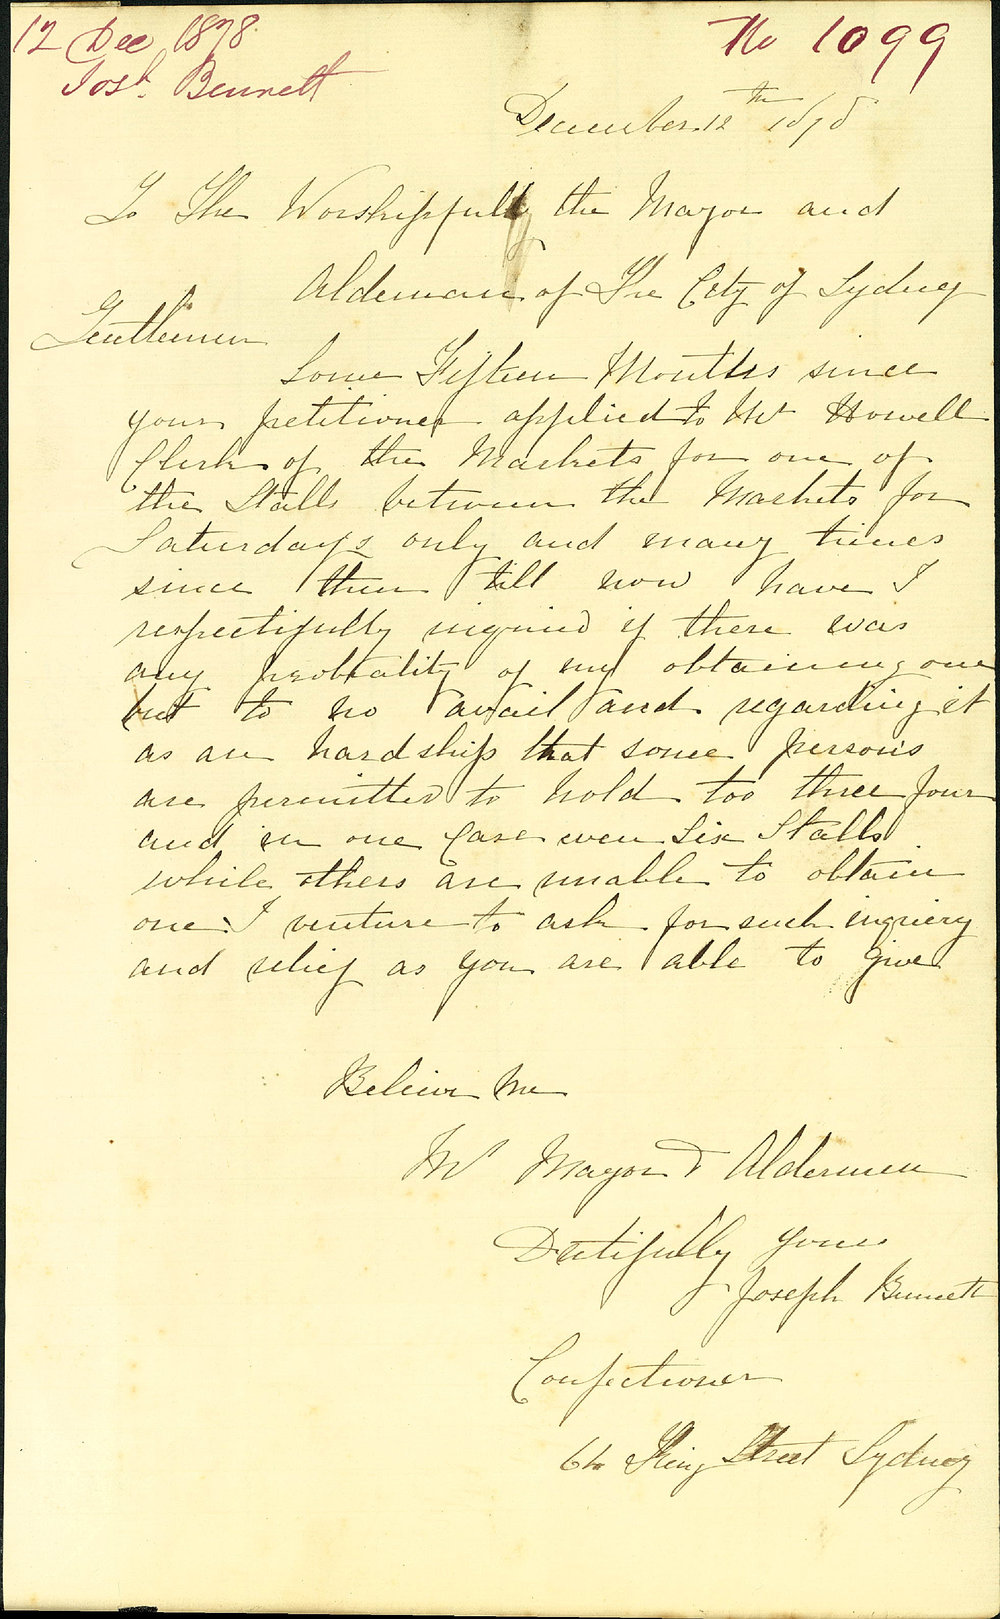 12 Dec 1878.
No 1099
Josh. Bennett
December 12th 1878
To The Worshipfull the Mayor and
Aldeman of The City of Sydney
Gentlemen
Some Fifteen Months since
your petitioner applied to Mr Howell
Clerk of the Markets for one of
the Stalls between the Markets for
Saturdays only and many times
since then till now have I
respectifully inquired if there was
any probtality of my obtaining one
but to no avail and regarding it
as an hardship that some persons
are permitted to hold too three four
and in one Case even Six Stalls
while others are unable to obtain
one I venture to ask for such inquiery
and relief as you are able to give
Believe Me
Mr Mayor & Aldermen
Dutifully yours
Joseph Bennett
Confectioner
64 King Street Sydney